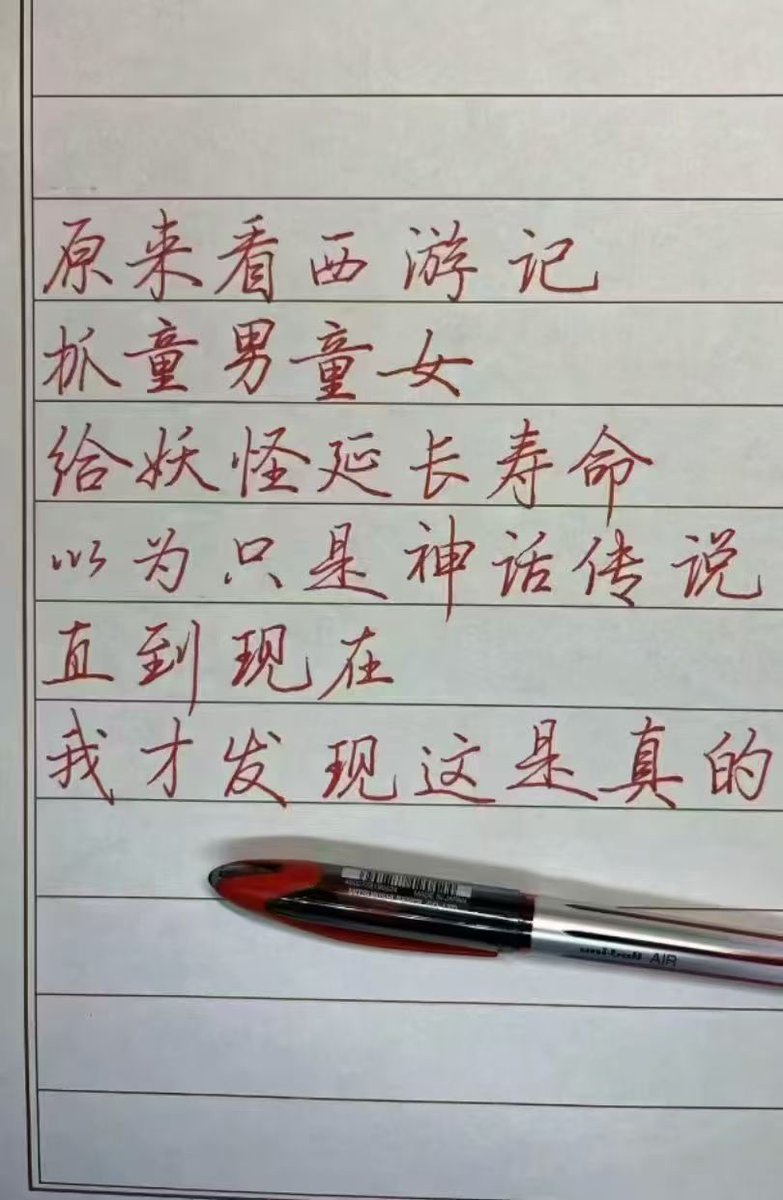 原来看西游记
抓童男童女
给妖怪延长寿命
以为只是神话传说
直到现在
我才发现这是真的
uni-ball AIR